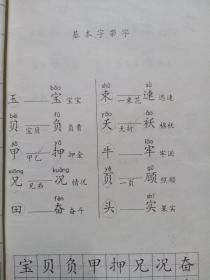 基本字带字
bǎo
玉——宝 宝宝
bèi fù
贝 宝贝 负 负责
jiǎ yā
甲 甲乙 押 押金
xiōng kuàng
兄 兄弟 况 情况
fèn
田——奋 奋斗
shù sù
束 一束花 速 迅速
yāo ǎo
夭 夭折 袄 棉袄
láo
牛——牢 牢固
yè gù
页 一页 顾 照顾
shí
头——实 果实
宝贝负甲押兄况奋